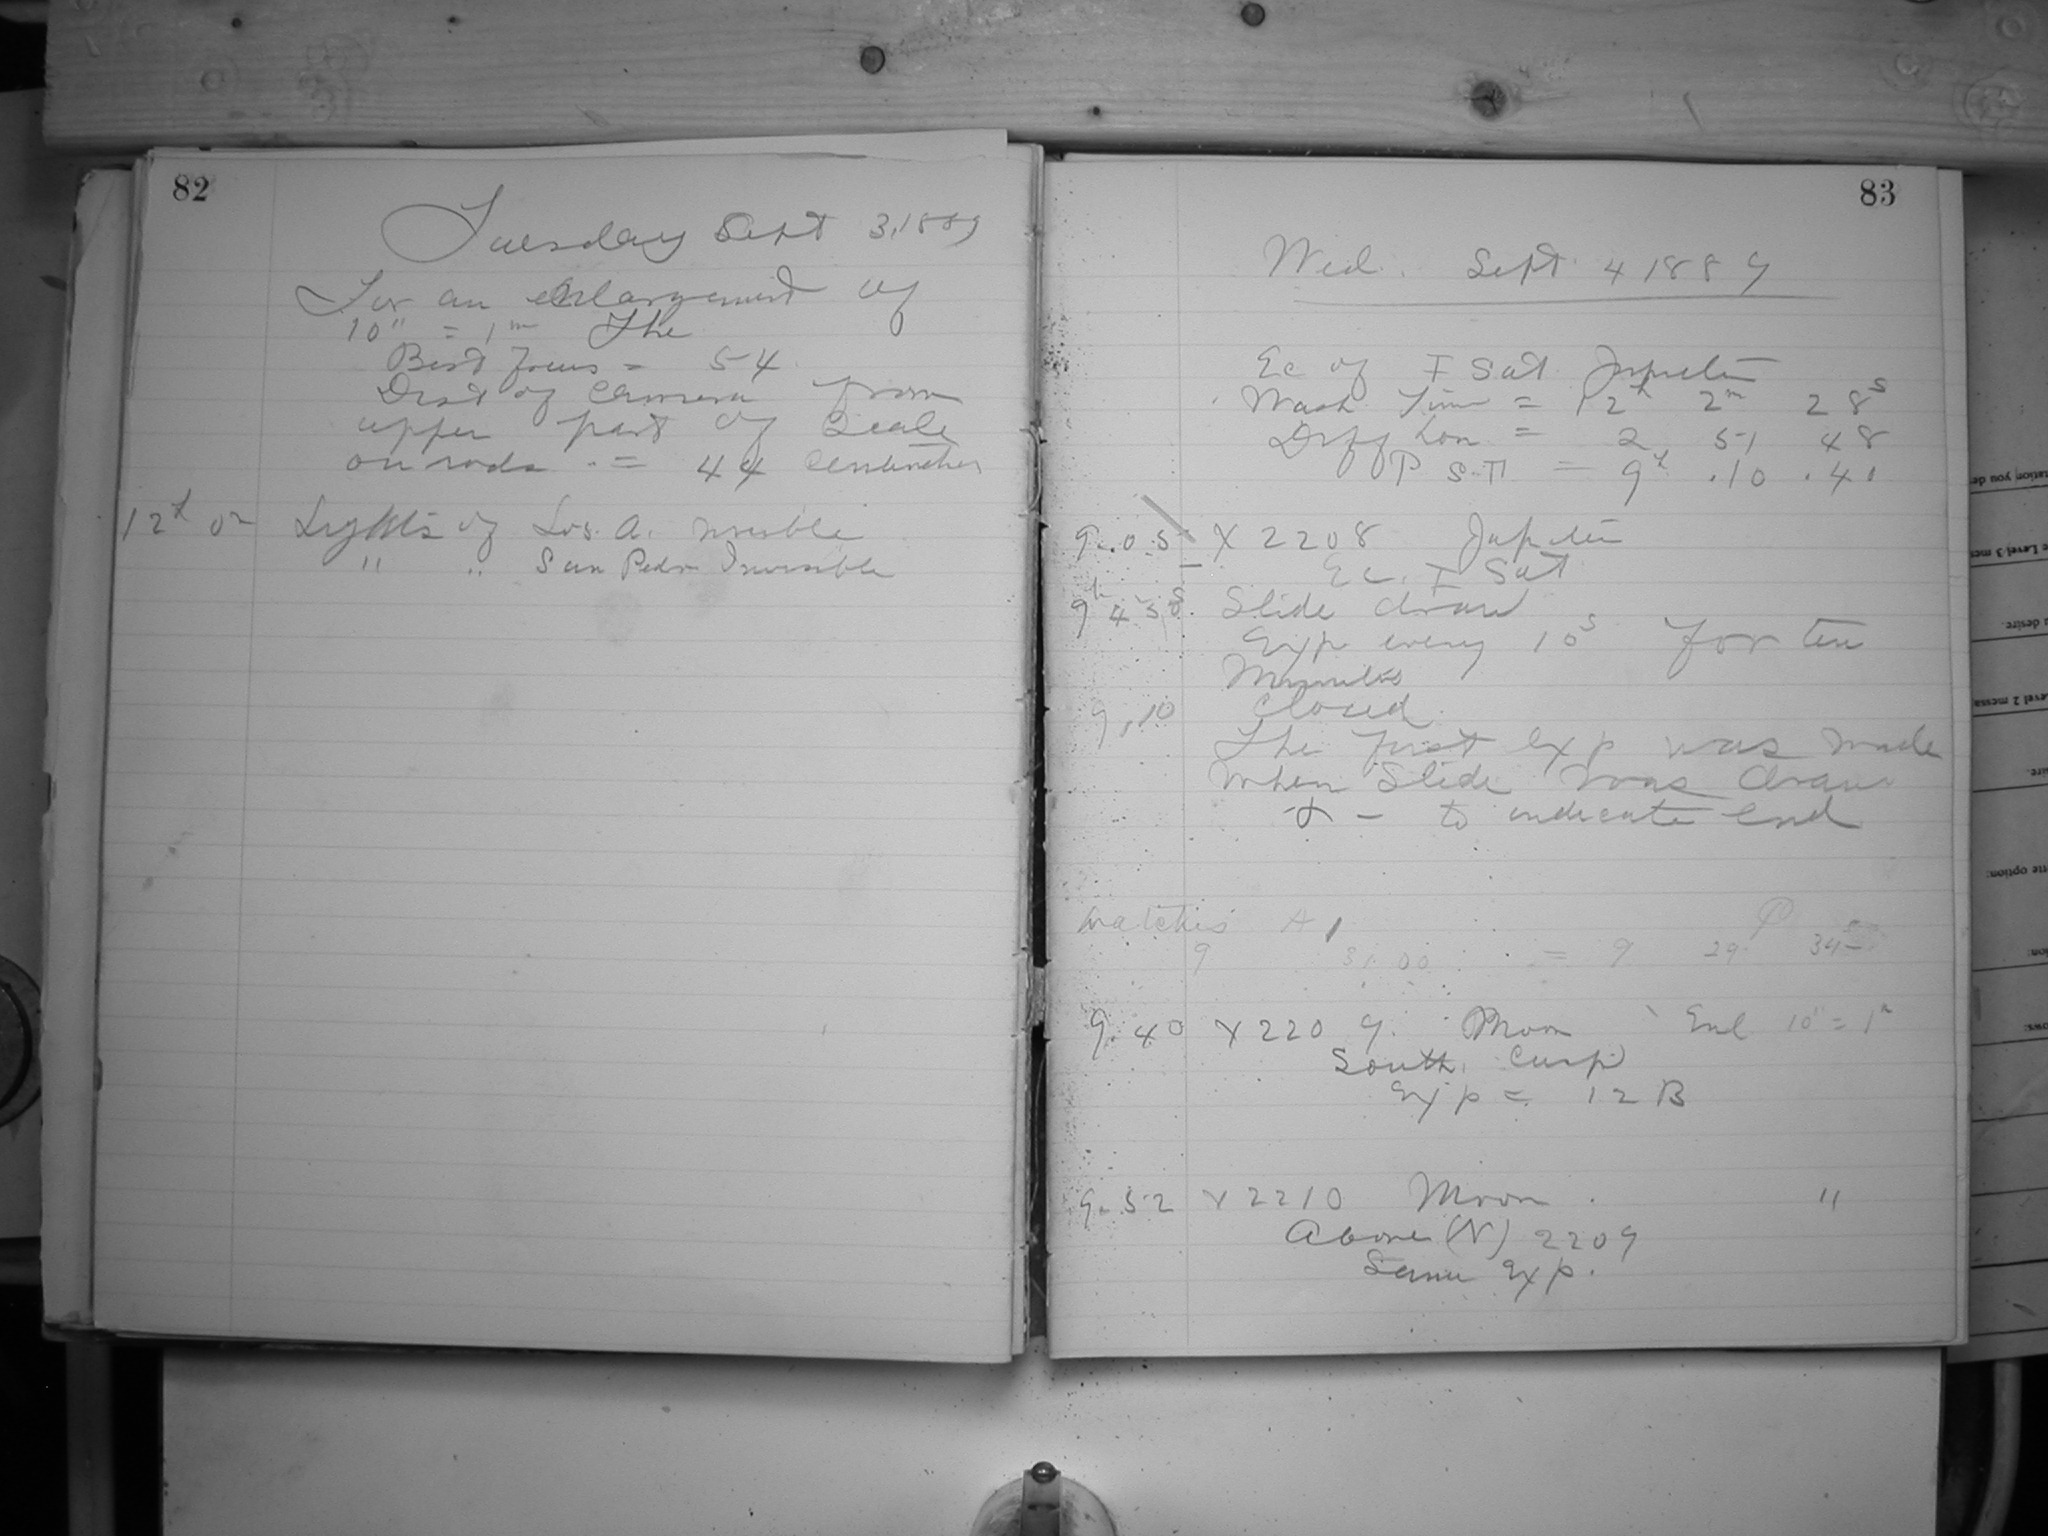 82
Tuesday Sept 3, 1889
For an enlargement of
10" = 1m The
Best focus = 54
Dist of Camera from
upper part of Scale
on rods = 44 Centimeters
12h 0m Lights of Los. A. visible
" " San Pedro Invisible
83
Wed. Sept 4 1889
Ec of I Sat Jupiter
Wash Time = 12h 2m 28s
Diff Lon = 2 51 48
P S T = 9h .10 .40
9.05 X 2208 Jupiter
Ec. I Sat
9h 4 58s. Slide draw
Exp every 10s for ten
Minutes
9,10 Closed
The first exp was made
when Slide was draw
& - to indicate end
watches A P
9 31.00 = 9 29 34
9.40 X 2209. Moon Enl 10" = 1m
South Cusp
Exp = 12 B
9.52 X 2210 Moon "
Above (N) 2209
Same Exp.